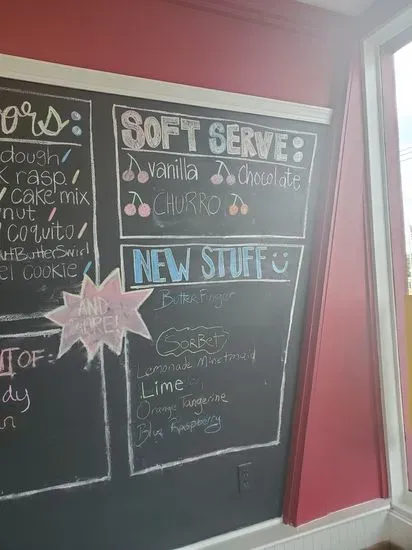 ors:
dough
rasp.
cake mix
nut
coquito
ButterSwirl
cookie
OF:
dy
SOFT SERVE:
vanilla chocolate
CHURRO
NEW STUFF
Butterfinger
AND
MORE!
Sorbet
Lemonade Minetmaid
Lime
Orange Tangerine
Blue Raspberry